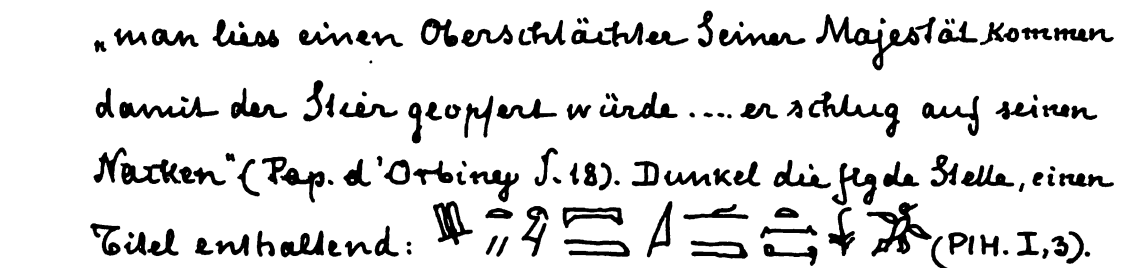 „man liess einen Oberschlächter Seiner Majestät kommen
damit der Stier geopfert würde .... er schlug auf seinen
Nacken" (Pap. d'Orbiney S. 18). Dunkel die flgde Stelle, einen
Titel enthaltend: (PIH. I, 3).